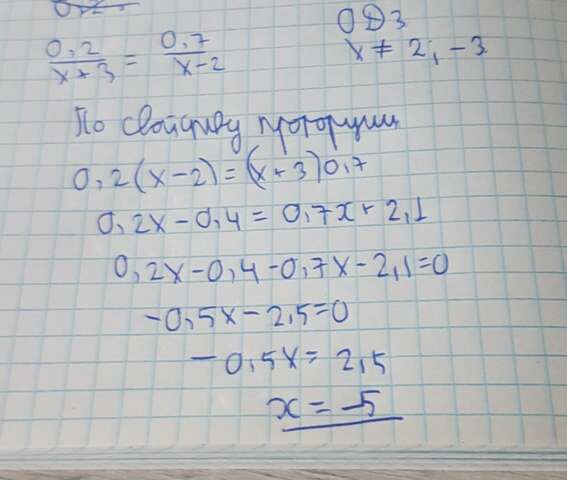 ОДЗ
0,2/x+3 = 0,7/x-2
x ≠ 2; -3
По свойству пропорции
0,2(x-2)=(x+3)0,7
0,2x-0,4=0,7x+2,1
0,2x-0,4-0,7x-2,1=0
-0,5x-2,5=0
-0,5x=2,5
x=-5